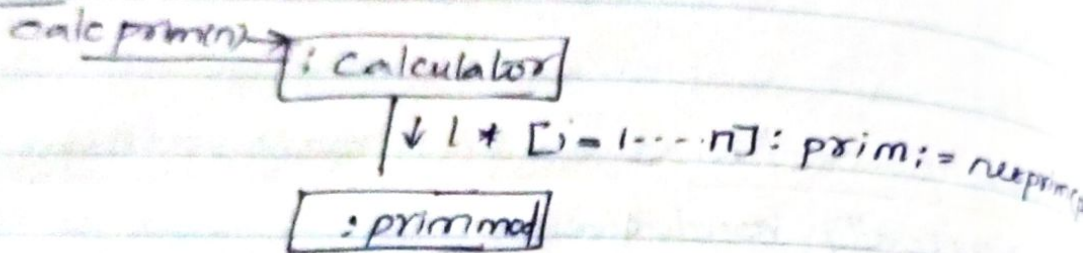 calc prim(n)
: Calculator
↓ 1 * [i = 1 .... n] : prim : = nexprim(p
: primmod